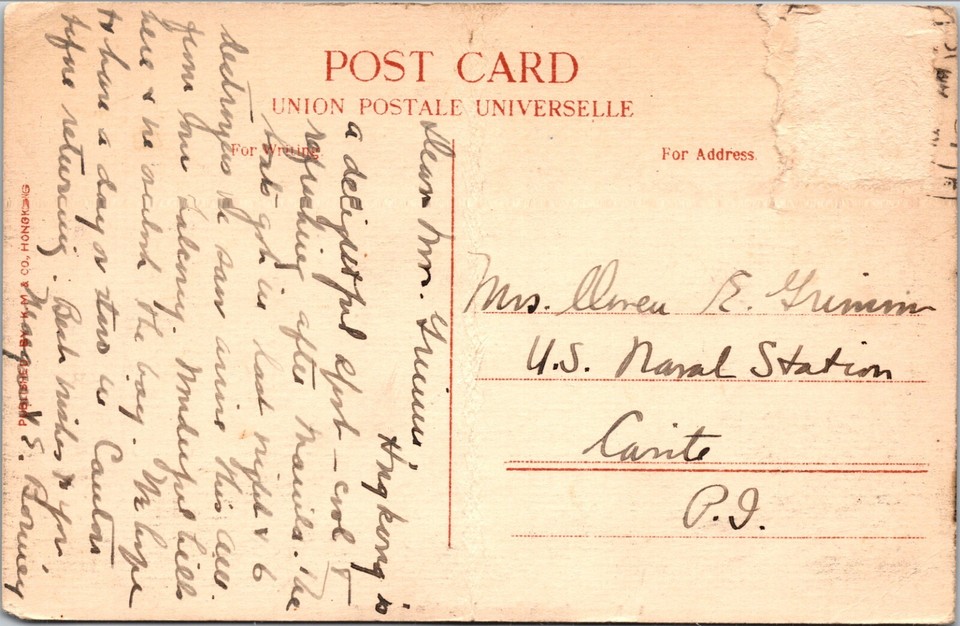 POST CARD
UNION POSTALE UNIVERSELLE
For Writing
For Address.
Dear Mrs. Grimm
Hngkong is
a delightful spot – cool &
refreshing after Manila. The
boats got in last night & 6
destroyers we saw arrive this a.m.
from our balcony. Wonderful hills
here & we watch the bay. We hope
to have a day or two in Canton
before returning. Best wishes to you.
E. Borney
Mrs. Owen E. Grimm
U.S. Naval Station
Cavite
P.I.
PUBLISHED BY K.M & CO, HONGKONG